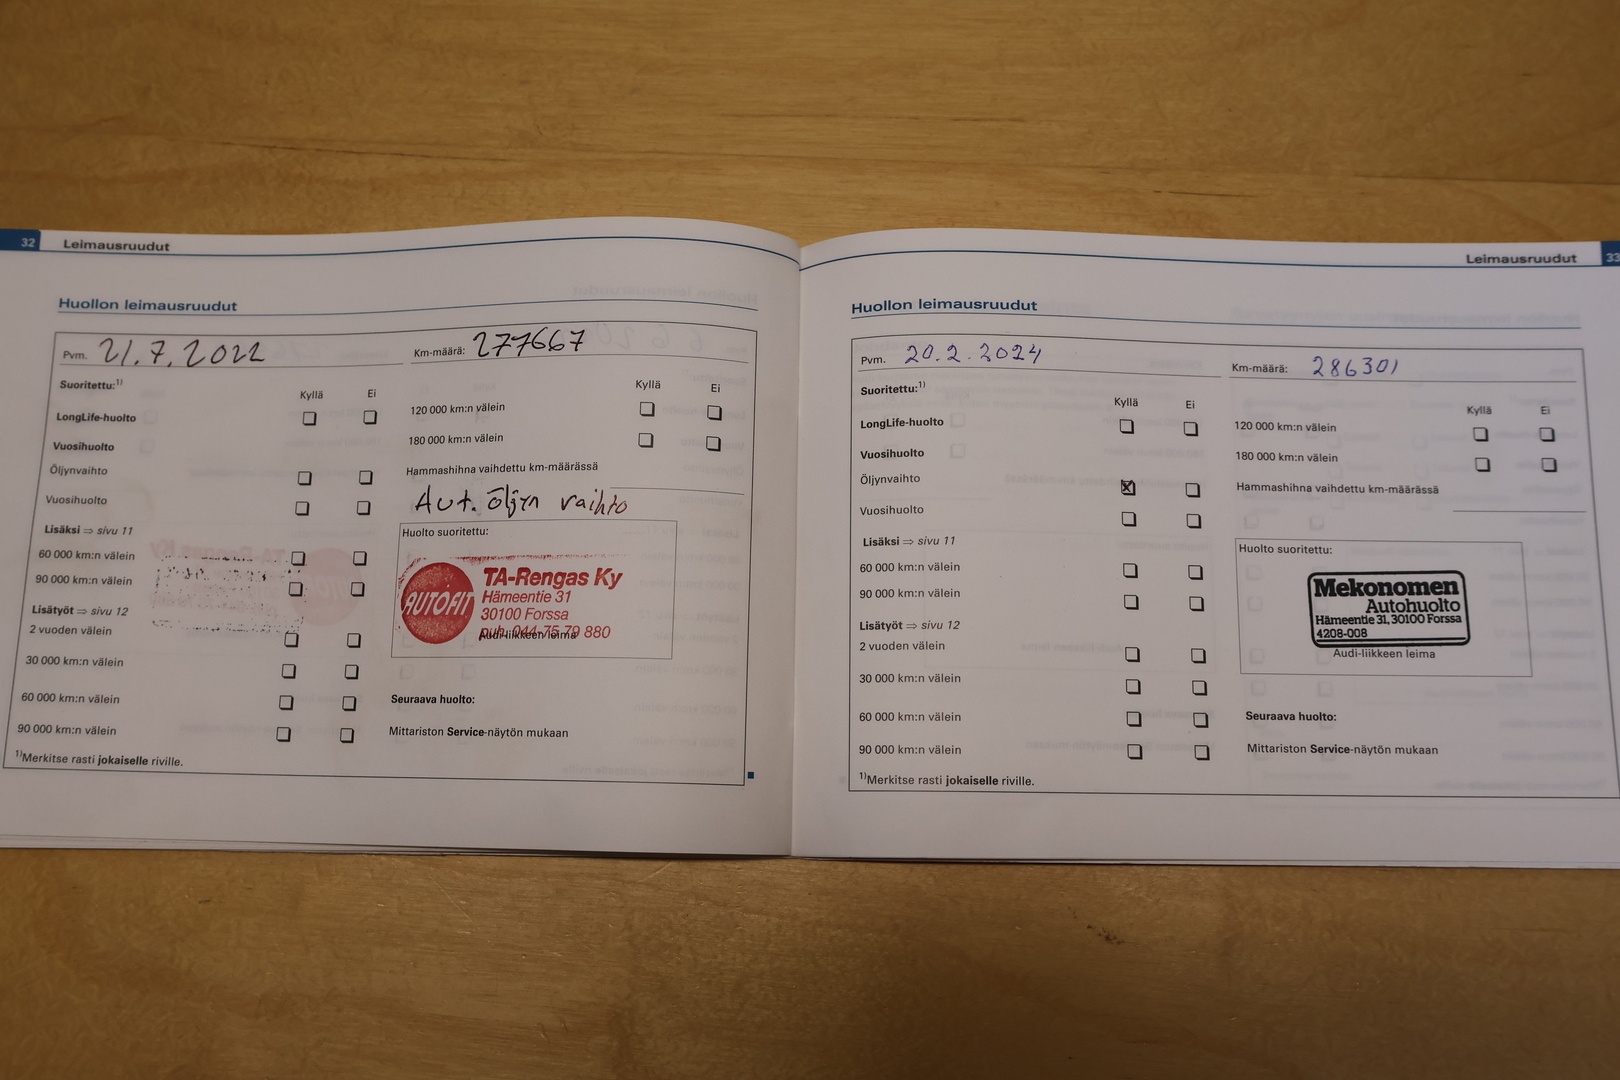 32 Leimausruudut
Huollon leimausruudut
Pvm. 21.7.2022
Km-määrä: 277667
Suoritettu:¹⁾
Kyllä Ei
LongLife-huolto
Vuosihuolto
Öljynvaihto
Vuosihuolto
Lisäksi ⇒ sivu 11
60 000 km:n välein
90 000 km:n välein
Lisätyöt ⇒ sivu 12
2 vuoden välein
30 000 km:n välein
60 000 km:n välein
90 000 km:n välein
¹⁾Merkitse rasti jokaiselle riville.
Kyllä Ei
120 000 km:n välein
180 000 km:n välein
Hammashihna vaihdettu km-määrässä
Aut. öljyn vaihto
Huolto suoritettu:
AUTOFIT
TA-Rengas Ky
Hämeentie 31
30100 Forssa
puh. 044-75 79 880
Audi-liikkeen leima
Seuraava huolto:
Mittariston Service-näytön mukaan
Leimausruudut 33
Huollon leimausruudut
Pvm. 20.2.2024
Km-määrä: 286301
Suoritettu:¹⁾
Kyllä Ei
LongLife-huolto
Vuosihuolto
Öljynvaihto
Vuosihuolto
Lisäksi ⇒ sivu 11
60 000 km:n välein
90 000 km:n välein
Lisätyöt ⇒ sivu 12
2 vuoden välein
30 000 km:n välein
60 000 km:n välein
90 000 km:n välein
¹⁾Merkitse rasti jokaiselle riville.
Kyllä Ei
120 000 km:n välein
180 000 km:n välein
Hammashihna vaihdettu km-määrässä
Huolto suoritettu:
Mekonomen
Autohuolto
Hämeentie 31, 30100 Forssa
4208-008
Audi-liikkeen leima
Seuraava huolto:
Mittariston Service-näytön mukaan